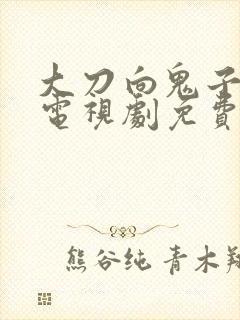 大刀向鬼子
電視劇免費
熊谷纯 青木翔